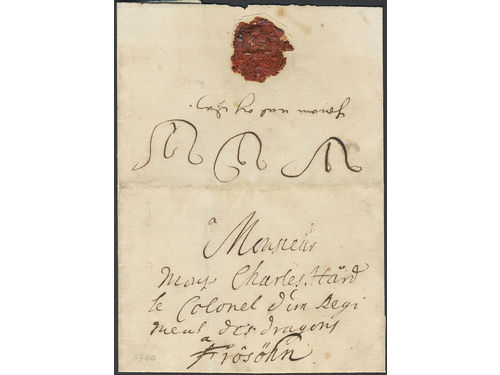 a
Monsieur
Mons Charles Hård
le Colonel d'un Regi
ment des dragons
a
Frösöhn
1700